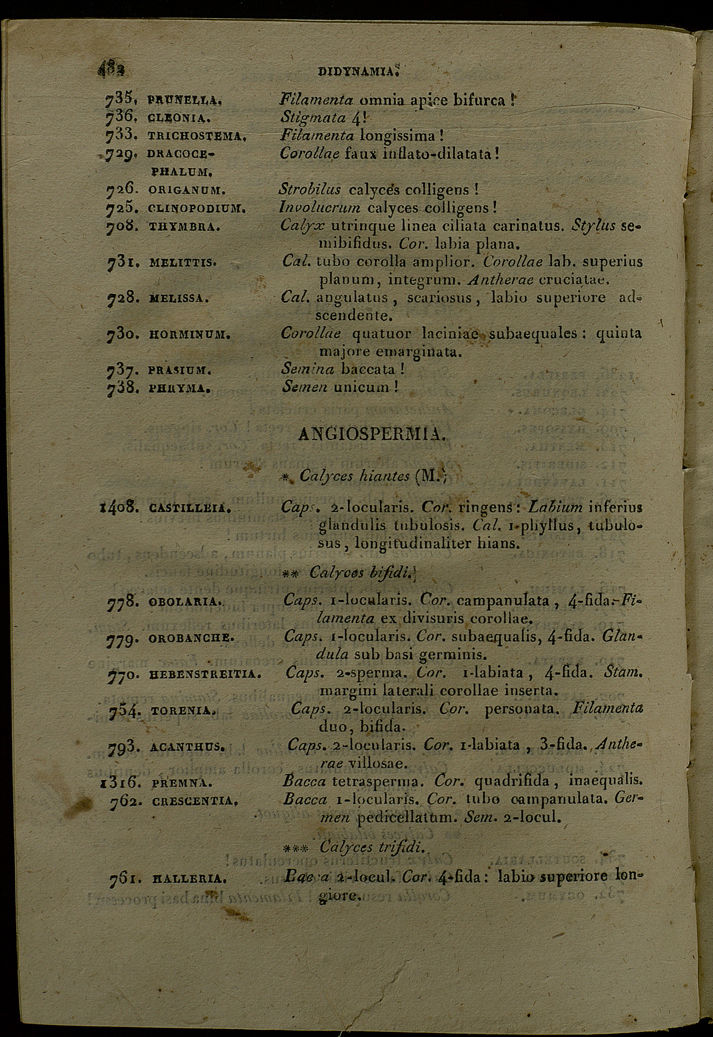 482 DIDYNAMIA.
735. PRUNELLA. Filamenta omnia apice bifurca !
736. CLEONIA. Stigmata 4!
733. TRICHOSTEMA. Filamenta longissima !
729. DRACOCE- Corollae faux inflato-dilatata !
PHALUM.
726. ORIGANUM. Strobilus calyces colligens !
725. CLINOPODIUM. Involucrum calyces colligens !
708. THYMBRA. Calyx utrinque linea ciliata carinatus. Stylus se-
mibifidus. Cor. labia plana.
731. MELITTIS. Cal. tubo corolla amplior. Corollae lab. superius
planum, integrum. Antherae cruciatae.
728. MELISSA. Cal. angulatus , scariosus , labio superiore ad-
scendente.
730. HORMINUM. Corollae quatuor laciniae subaequales : quinta
majore emarginata.
737. PRASIUM. Semina baccata !
738. PHRYMA. Semen unicum !
ANGIOSPERMIA.
* Calyces hiantes (M.)
1408. CASTILLEIA. Caps. 2-locularis. Cor. ringens : Labium inferius
glandulis tubulosis. Cal. 1-phyllus, tubulo-
sus , longitudinaliter hians.
** Calyces bifidi.
778. OBOLARIA. Caps. 1-locularis. Cor. campanulata , 4-fida. Fi-
lamenta ex divisuris corollae.
779. OROBANCHE. Caps. 1-locularis. Cor. subaequalis, 4-fida. Glan-
dula sub basi germinis.
770. HEBENSTREITIA. Caps. 2-sperma. Cor. 1-labiata , 4-fida. Stam.
margini laterali corollae inserta.
754. TORENIA. Caps. 2-locularis. Cor. personata. Filamenta
duo, bifida.
793. ACANTHUS. Caps. 2-locularis. Cor. 1-labiata , 3-fida. Anthe-
rae villosae.
1316. PREMNA. Bacca tetrasperma. Cor. quadrifida , inaequalis.
762. CRESCENTIA. Bacca 1-locularis. Cor. tubo campanulata. Ger-
men pedicellatum. Sem. 2-locul.
*** Calyces trifidi.
761. HALLERIA. Bacca 2-locul. Cor. 4-fida : labio superiore lon-
giore.